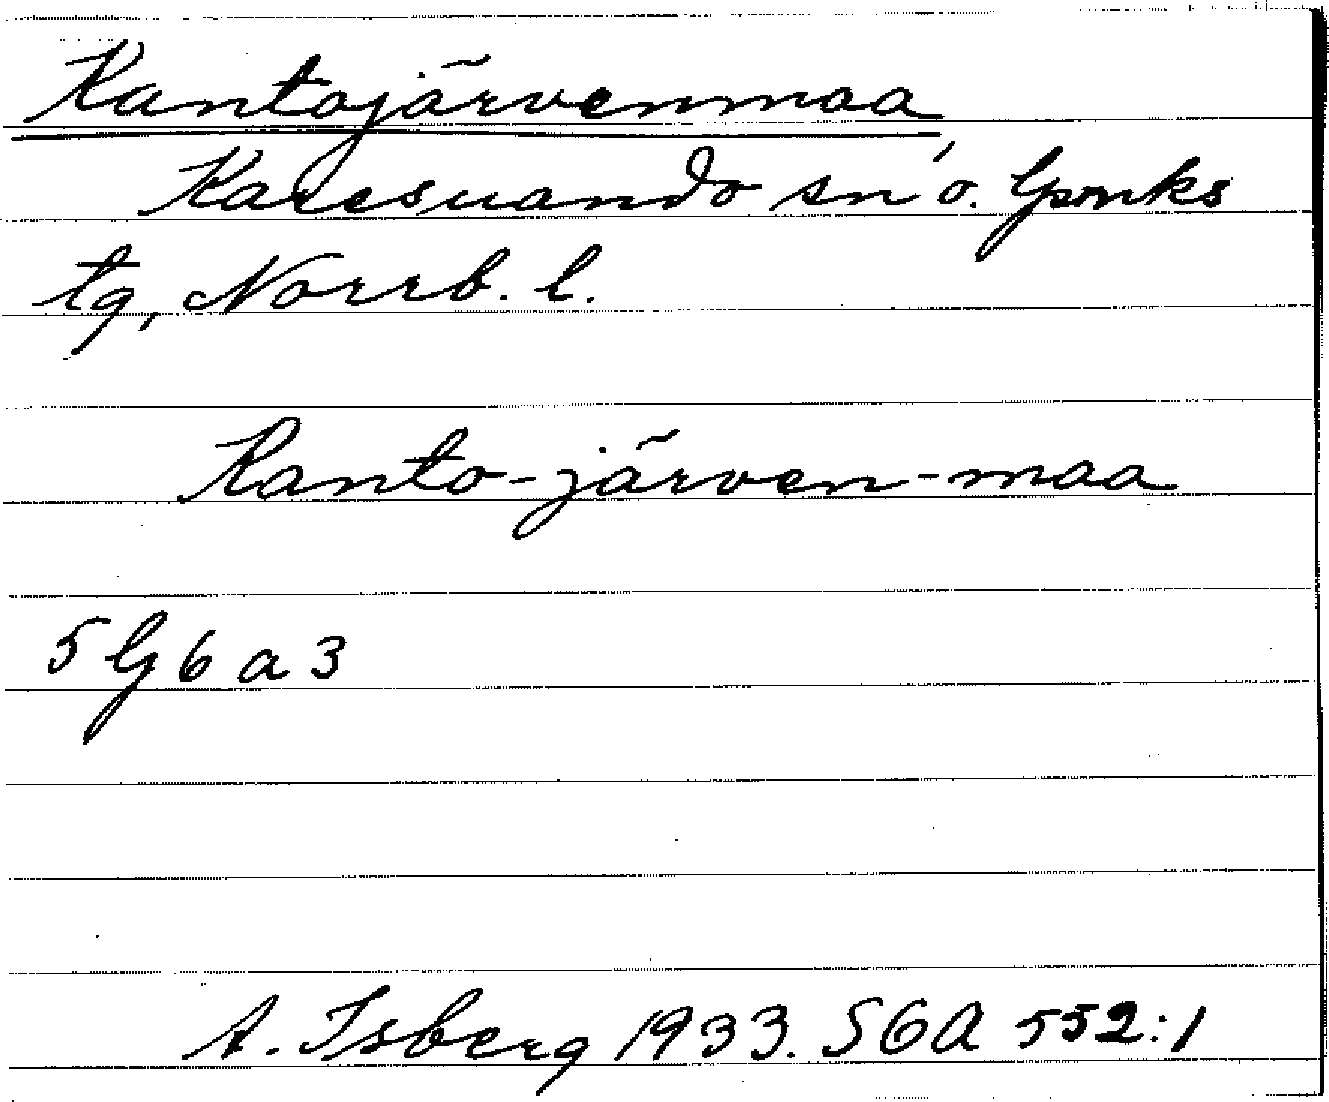 Kantojärvenmaa,
Karesuando sn o. lpmks
tg, Norrb. l.
Kanto-järven-maa
5 G 6 a 3
A. Isberg 1933. SOA 552:1